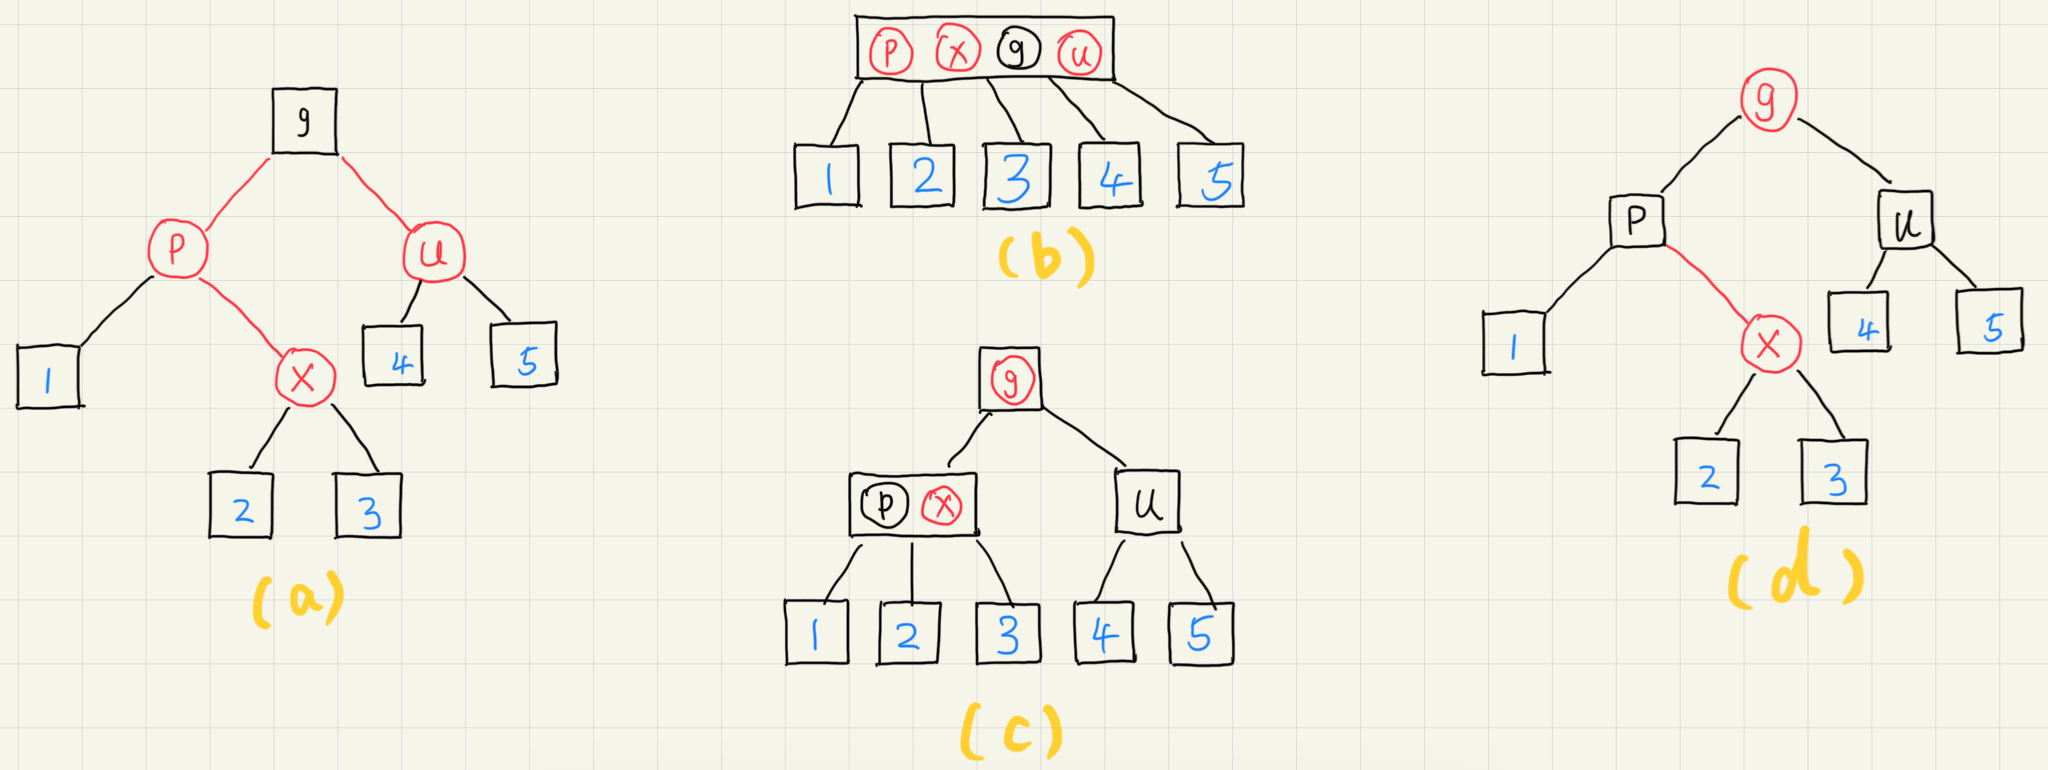 g
p u
1 x 4 5
2 3
(a)
p x g u
1 2 3 4 5
(b)
g
p x u
1 2 3 4 5
(c)
g
p u
1 x 4 5
2 3
(d)